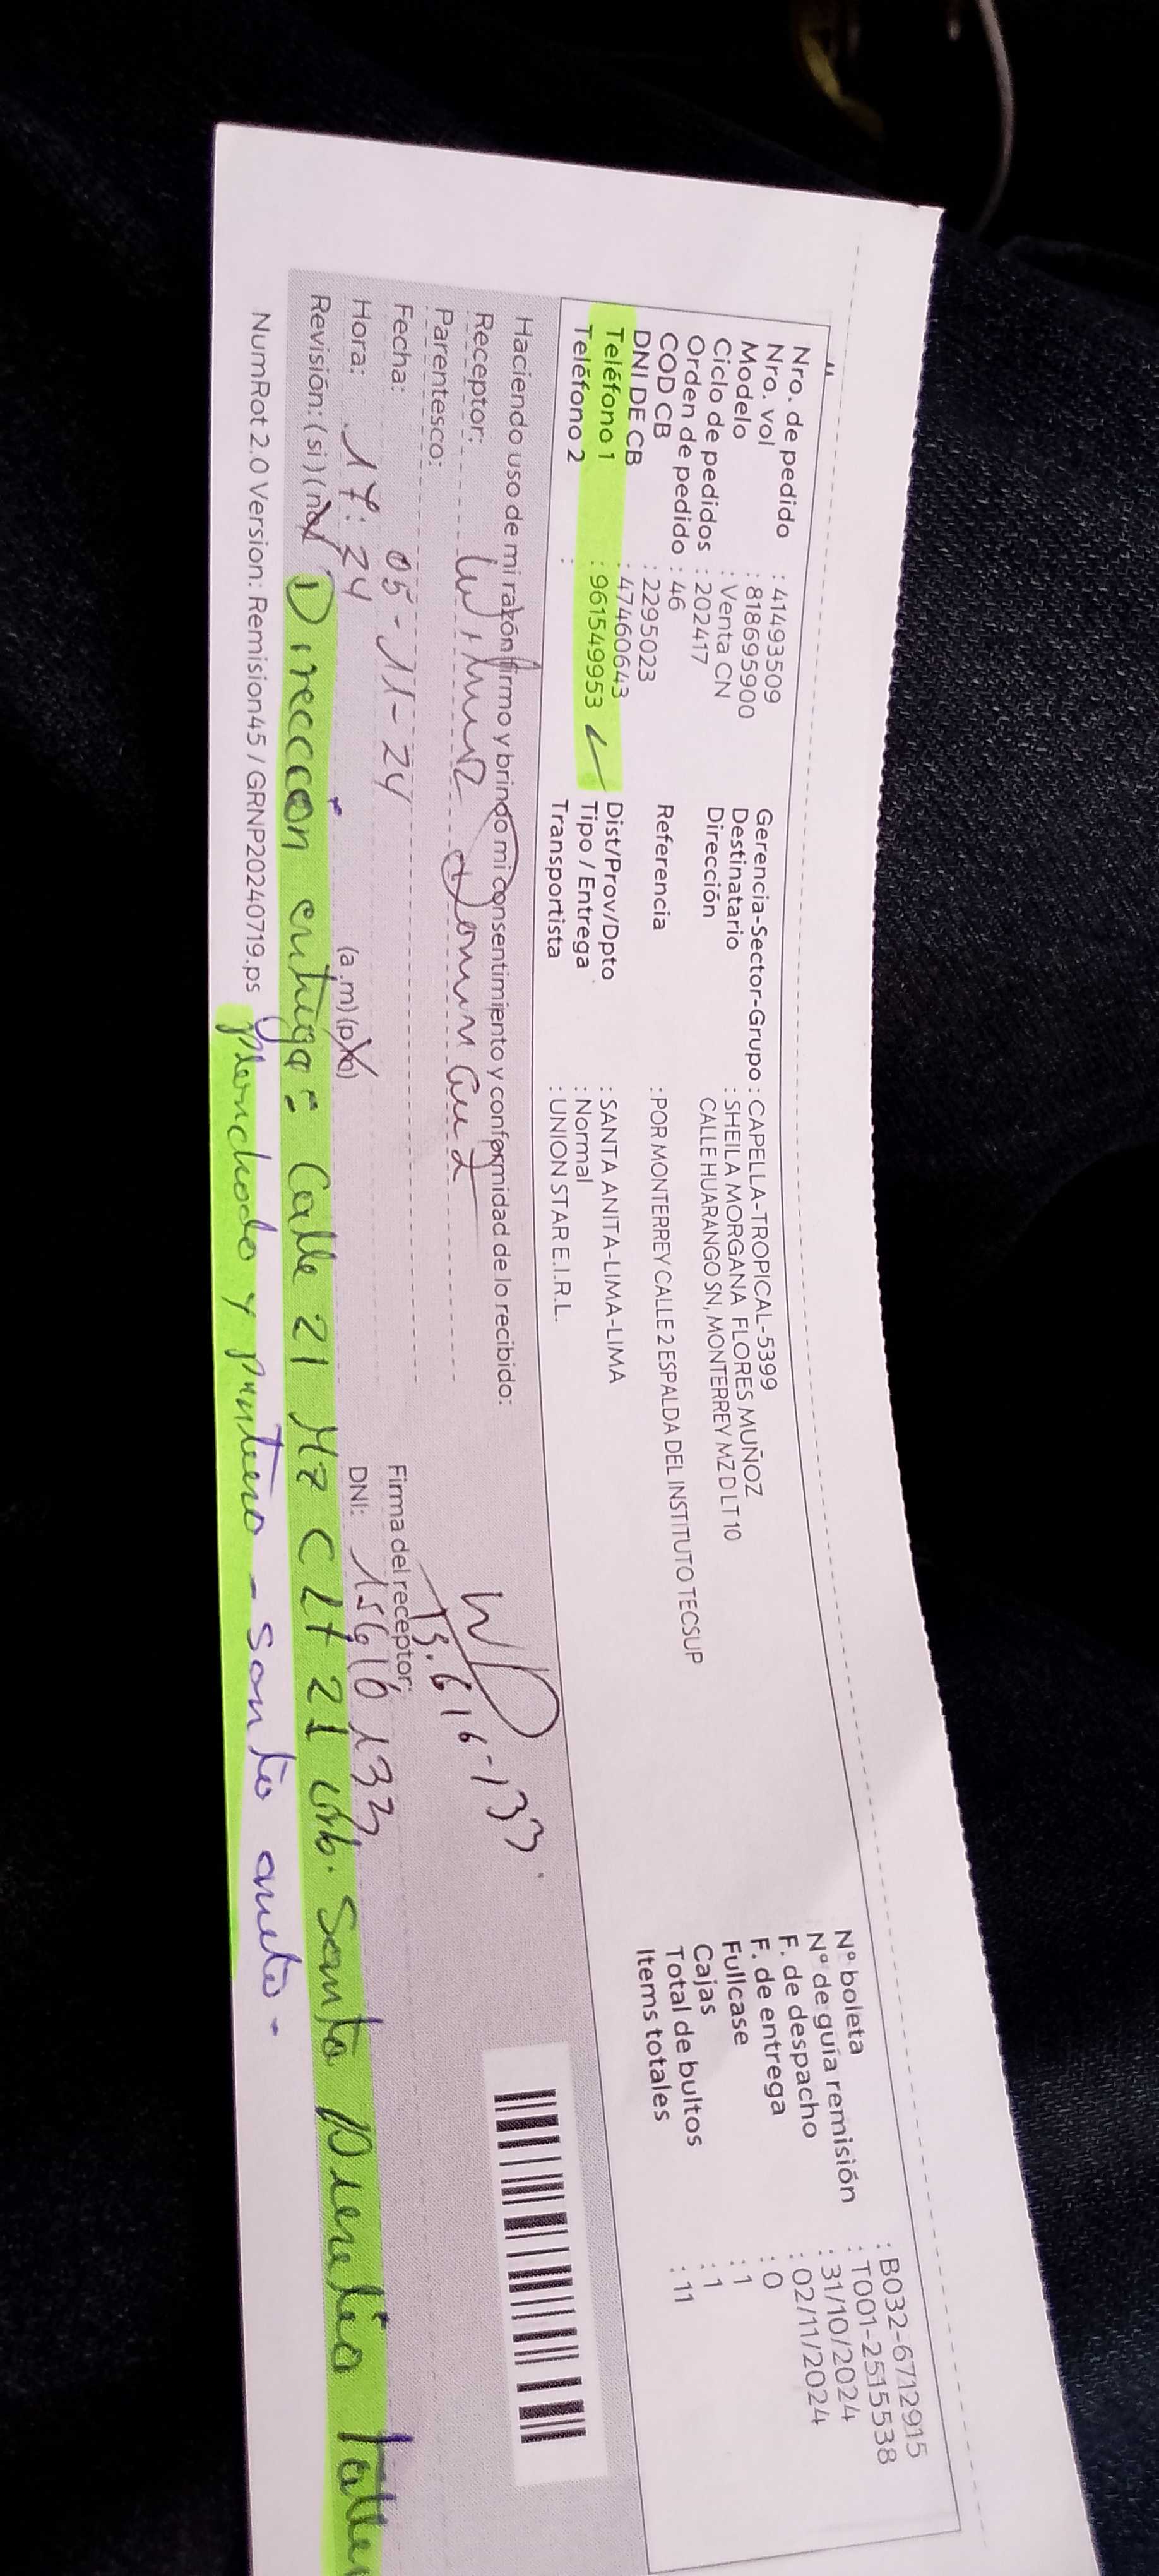 Nro. de pedido : 41493509
Nro. vol : 818695900
Modelo : Venta CN
Ciclo de pedidos : 202417
Orden de pedido : 46
COD CB : 2295023
DNI DE CB : 47460643
Teléfono 1 : 961549953
Teléfono 2 :
Gerencia-Sector-Grupo : CAPELLA-TROPICAL-5399
Destinatario : SHEILA MORGANA FLORES MUÑOZ
Dirección CALLE HUARANGO SN, MONTERREY MZ D LT 10
Referencia : POR MONTERREY CALLE 2 ESPALDA DEL INSTITUTO TECSUP
Dist/Prov/Dpto : SANTA ANITA-LIMA-LIMA
Tipo / Entrega : Normal
Transportista : UNION STAR E.I.R.L.
Nº boleta : B032-6712915
Nº de guía remisión : T001-2515538
F. de despacho : 31/10/2024
F. de entrega : 02/11/2024
Fullcase : 0
Cajas : 1
Total de bultos : 1
Items totales : 11
Haciendo uso de mi razón firmo y brindo mi consentimiento y conformidad de lo recibido:
Receptor:
Parentesco:
Fecha: 05-11-24
Hora: 17:24 (a.m) (p.m)
Revisión: (si) (no)
15.616-133
Firma del receptor:
DNI: 15616133
Dirección entrega: Calle 21 Mz C Lt 21 Urb. Santa Taller
NumRot 2.0 Version: Remision45 / GRNP20240719.ps
planchado y pintura - Santa anita -